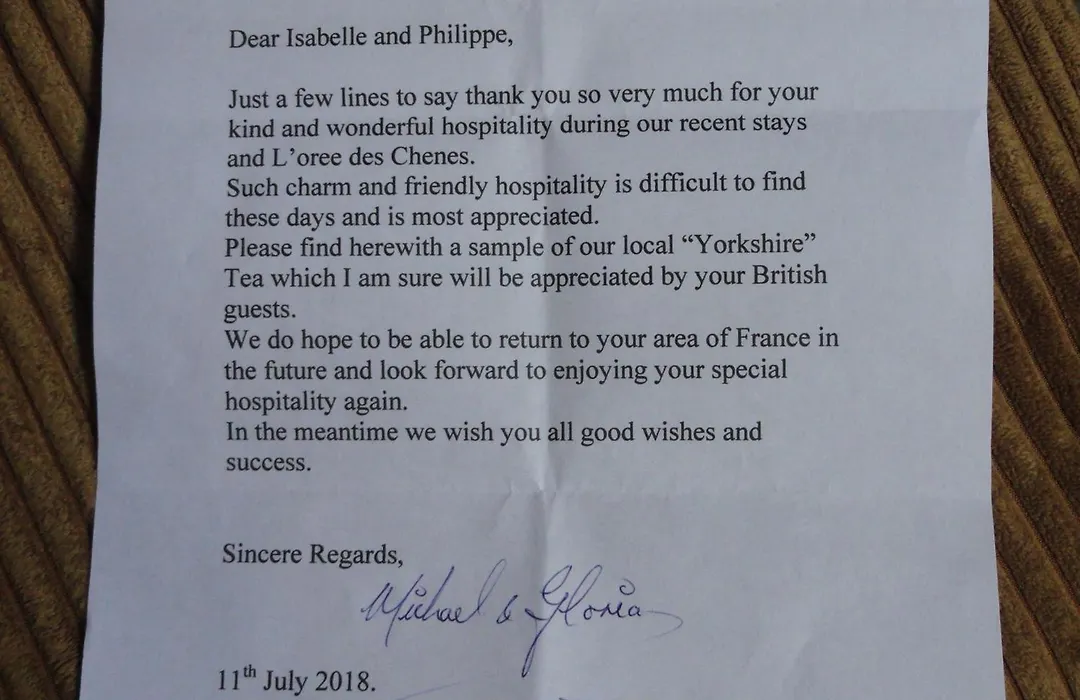 Dear Isabelle and Philippe,
Just a few lines to say thank you so very much for your
kind and wonderful hospitality during our recent stays
and L’oree des Chenes.
Such charm and friendly hospitality is difficult to find
these days and is most appreciated.
Please find herewith a sample of our local “Yorkshire”
Tea which I am sure will be appreciated by your British
guests.
We do hope to be able to return to your area of France in
the future and look forward to enjoying your special
hospitality again.
In the meantime we wish you all good wishes and
success.
Sincere Regards,
Michael & Gloria
11th July 2018.